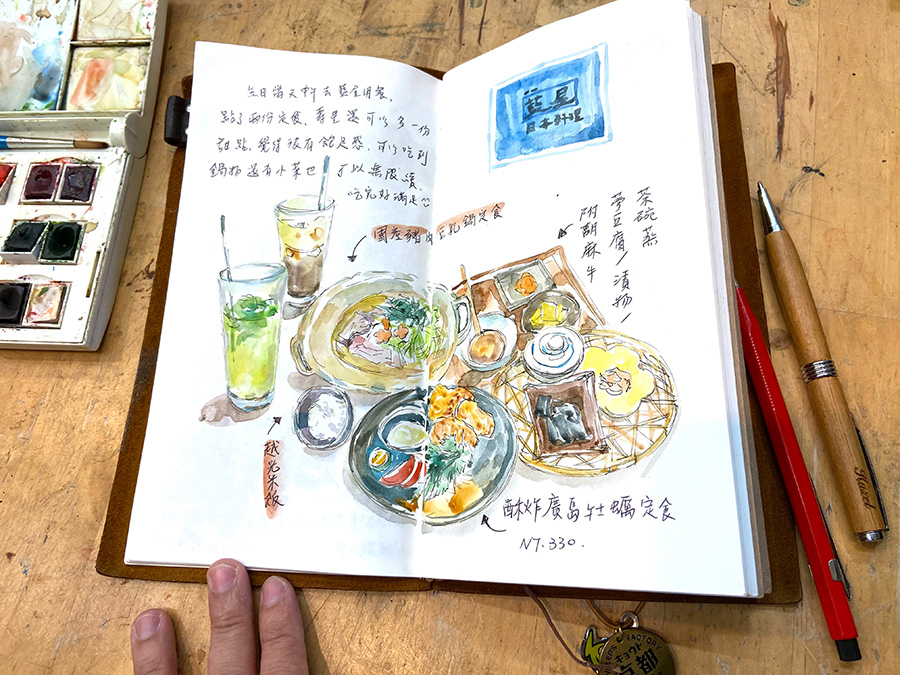 今日當天
點了兩份定食，看是還可以多一份
甜點，覺得很有飽足感，可以吃到
鍋物還有小菜也可以無限續，
吃完好滿足
國產豬肉豆乳鍋定食
越光米飯
藍星
日本料理
茶碗蒸
豆腐／漬物／
附胡麻牛
酥炸廣島牡蠣定食
NT.330.
Hazel
FACTORY
キョウト
京都